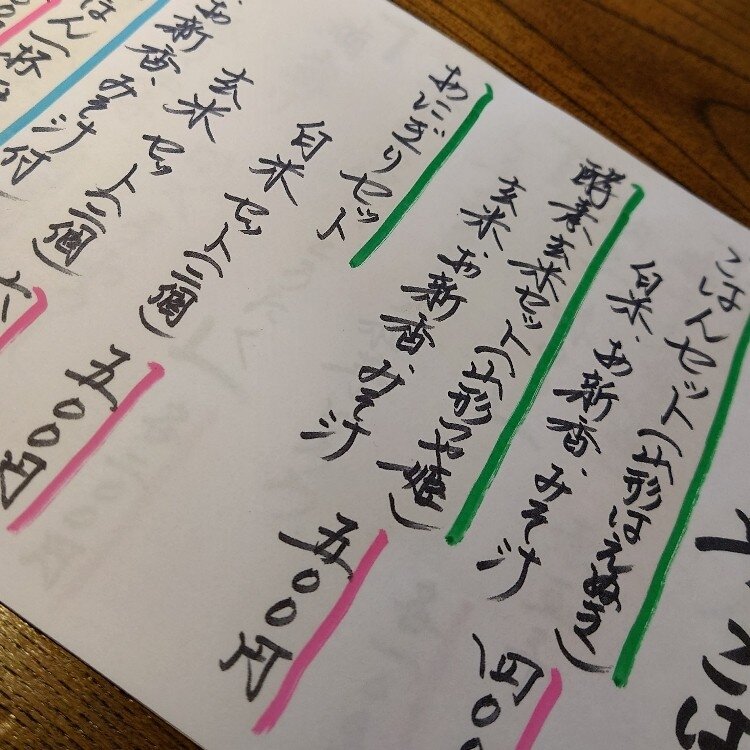 ごはんセット(山形はえぬき)
白米、お新香、みそ汁
四〇
酵素玄米セット(山形つや姫)
玄米、お新香、みそ汁
五〇〇円
おにぎりセット
白米セット(二個)
五〇〇円
玄米セット(二個)
六
お新香、みそ汁付
はん一杯